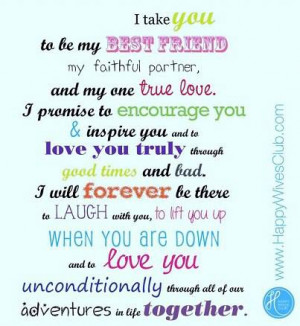 I take you
to be my BEST FRIEND
my faithful partner,
and my one true love.
I promise to encourage you
& inspire you and to
love you truly through
good times and bad.
I will forever be there
to LAUGH with you, to lift you up
WHEN YOU ARE DOWN
and to love you
unconditionally through all of our
adventures in life together.
www.HappyWivesClub.com